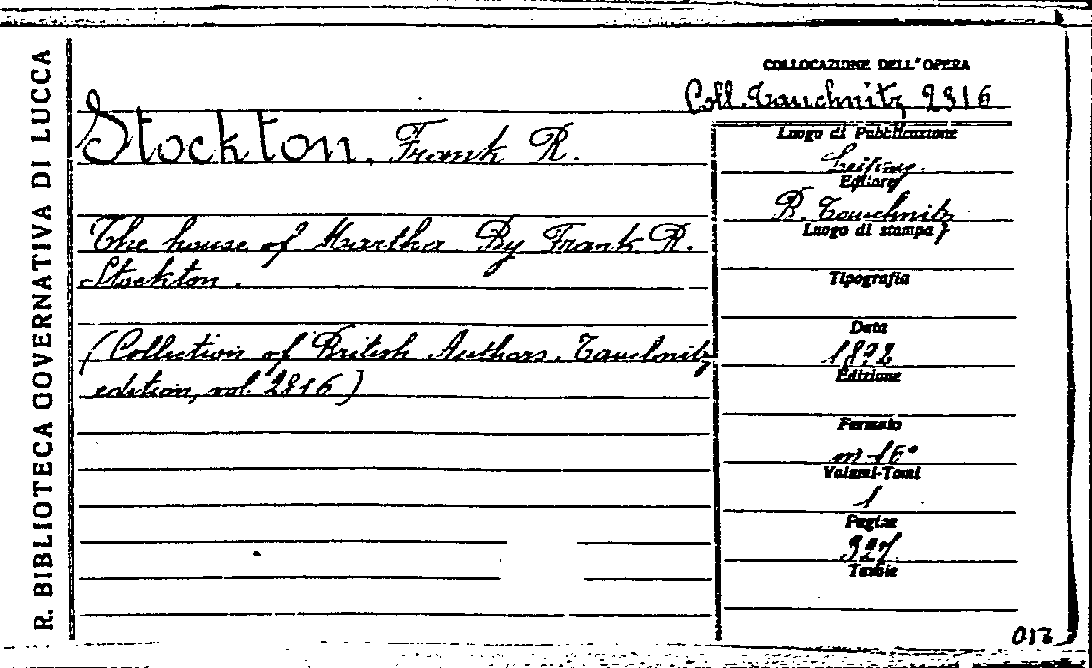 R. BIBLIOTECA GOVERNATIVA DI LUCCA
COLLOCAZIONE DELL'OPERA
Coll. Tauchnitz 2816
Stockton, Frank R.
The house of Martha By Frank R.
Stockton.
(Collection of British Authors. Tauchnitz
edition, vol. 2816)
Luogo di Pubblicazione
Leipzig
Editore
B. Tauchnitz
Luogo di stampa
Tipografia
Data
1892
Edizione
Formato
in 16°
Volumi-Tomi
1
Pagine
Tavole